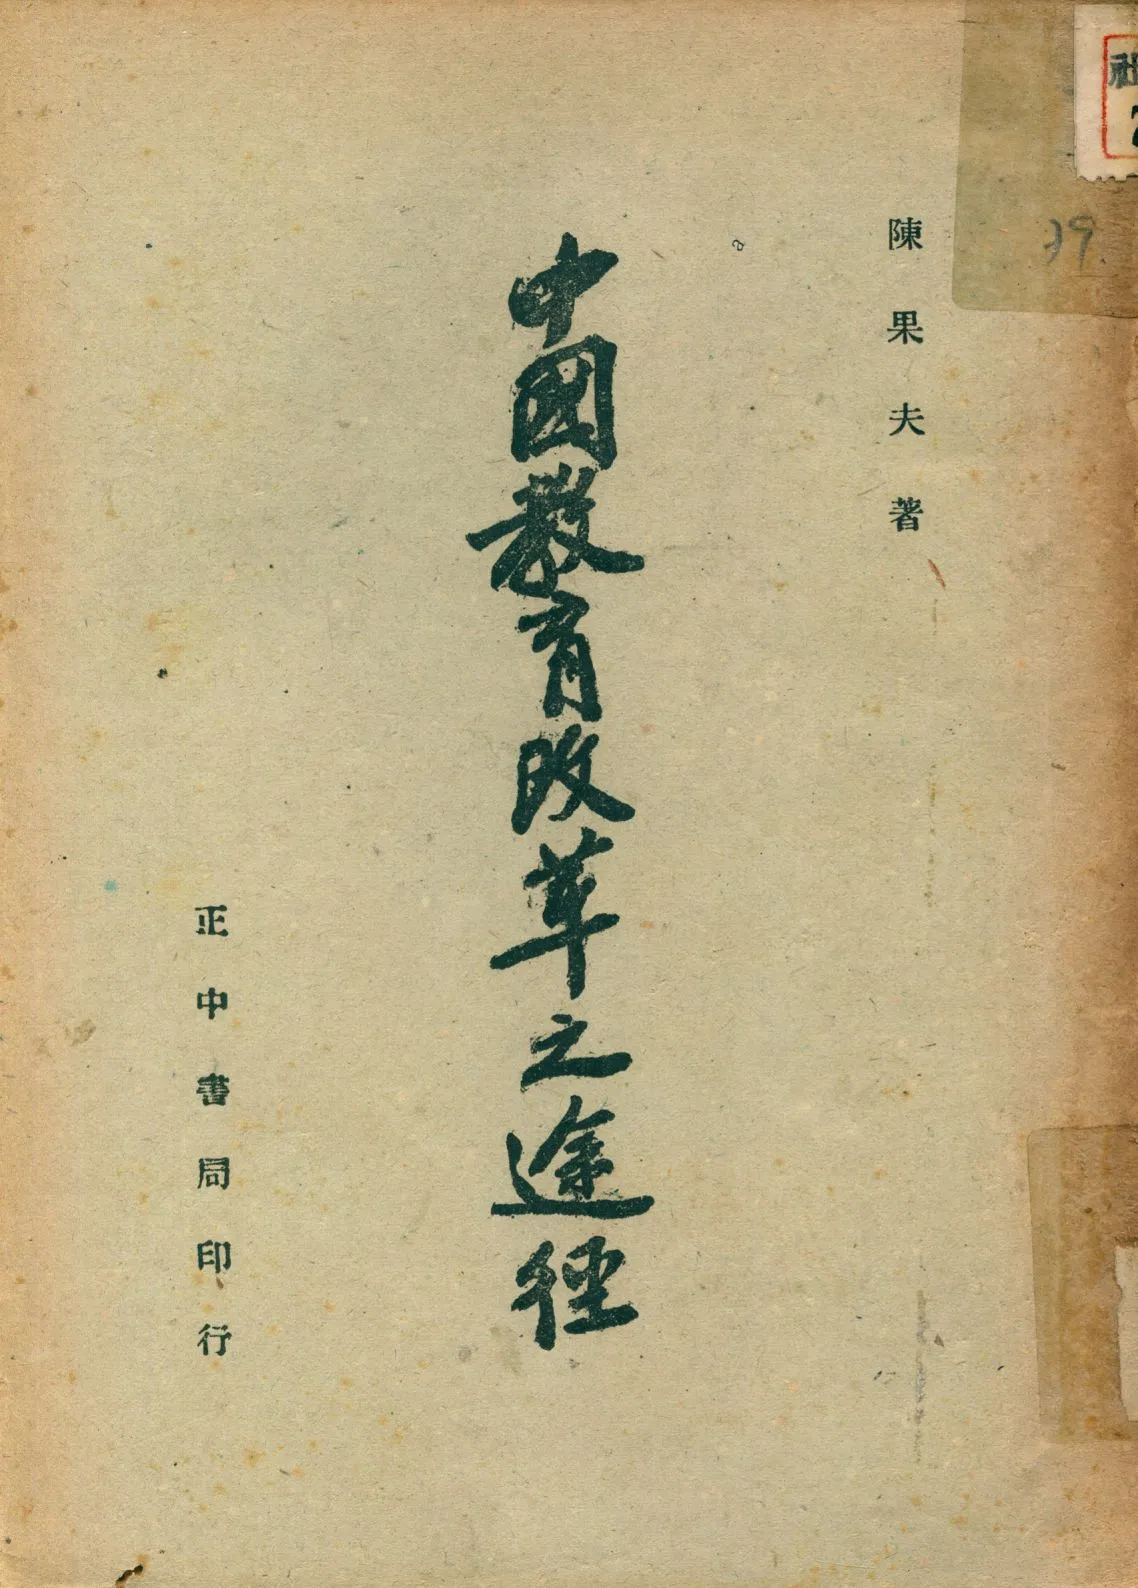 陳果夫著
中國教育改革之途徑
正中書局印行
社
39